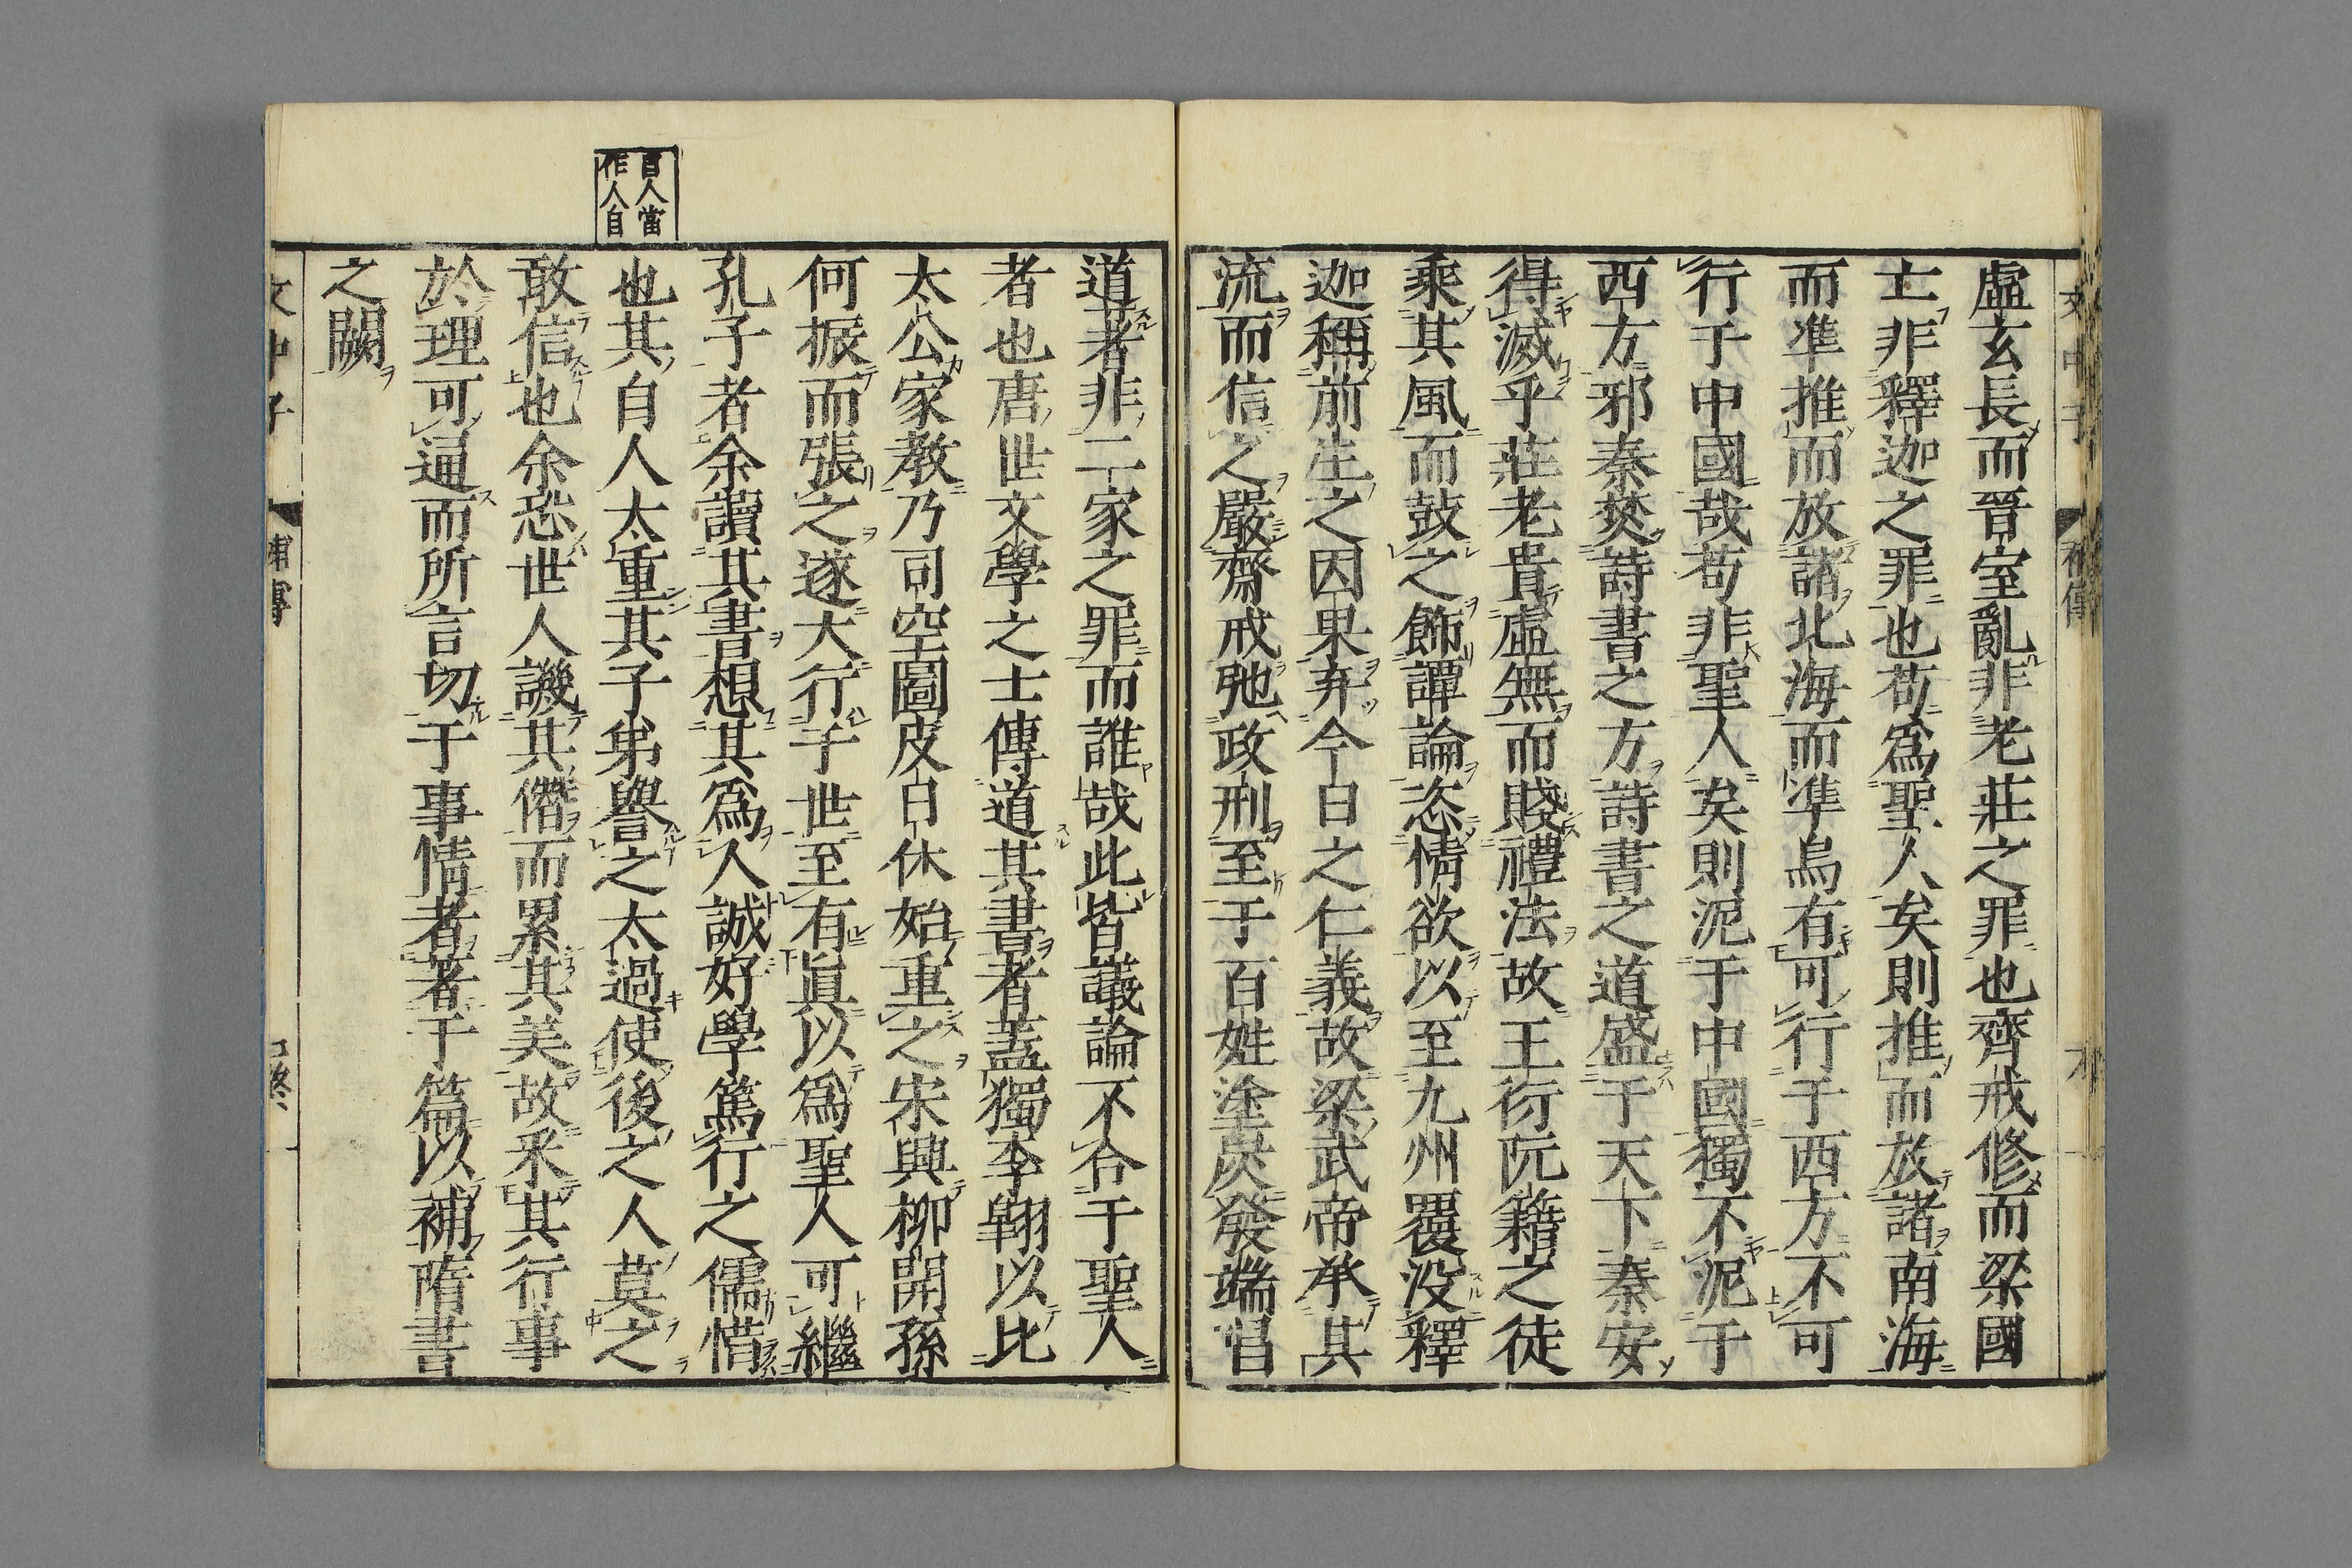 虛玄長而晉室亂非老莊之罪也齊戒修而梁國
士非釋迦之罪也苟爲聖人矣則推而放諸南海
而準推而放諸北海而準烏有可行于西方不可
行于中國哉苟非聖人矣則泥于中國獨不泥于
西方邪秦焚詩書之方詩書之道盛于天下秦安
得滅乎莊老貴虛無而賤禮法故王衍阮籍之徒
乘其風而鼓之飾譚論恣情欲以至九州覆没釋
迦稱前生之因果弃今日之仁義故梁武帝承其
流而信之嚴齋戒弛政刑至于百姓塗炭發端唱
道者非二家之罪而誰哉此皆議論不合于聖人
者也唐世文學之士傳道其書者蓋獨李翶以比
太公家教乃司空圖皮日休始重之宋興柳開孫
何振而張之遂大行于世至有眞以爲聖人可繼
孔子者余讀其書想其爲人誠好學篤行之儒惜
也其自人太重其子弟譽之太過使後之人莫之
敢信也余恐世人譏其僭而累其美故釆其行事
於理可通而所言切于事情者著于篇以補隋書
之闕
自人當
作人自
文中子
補傳